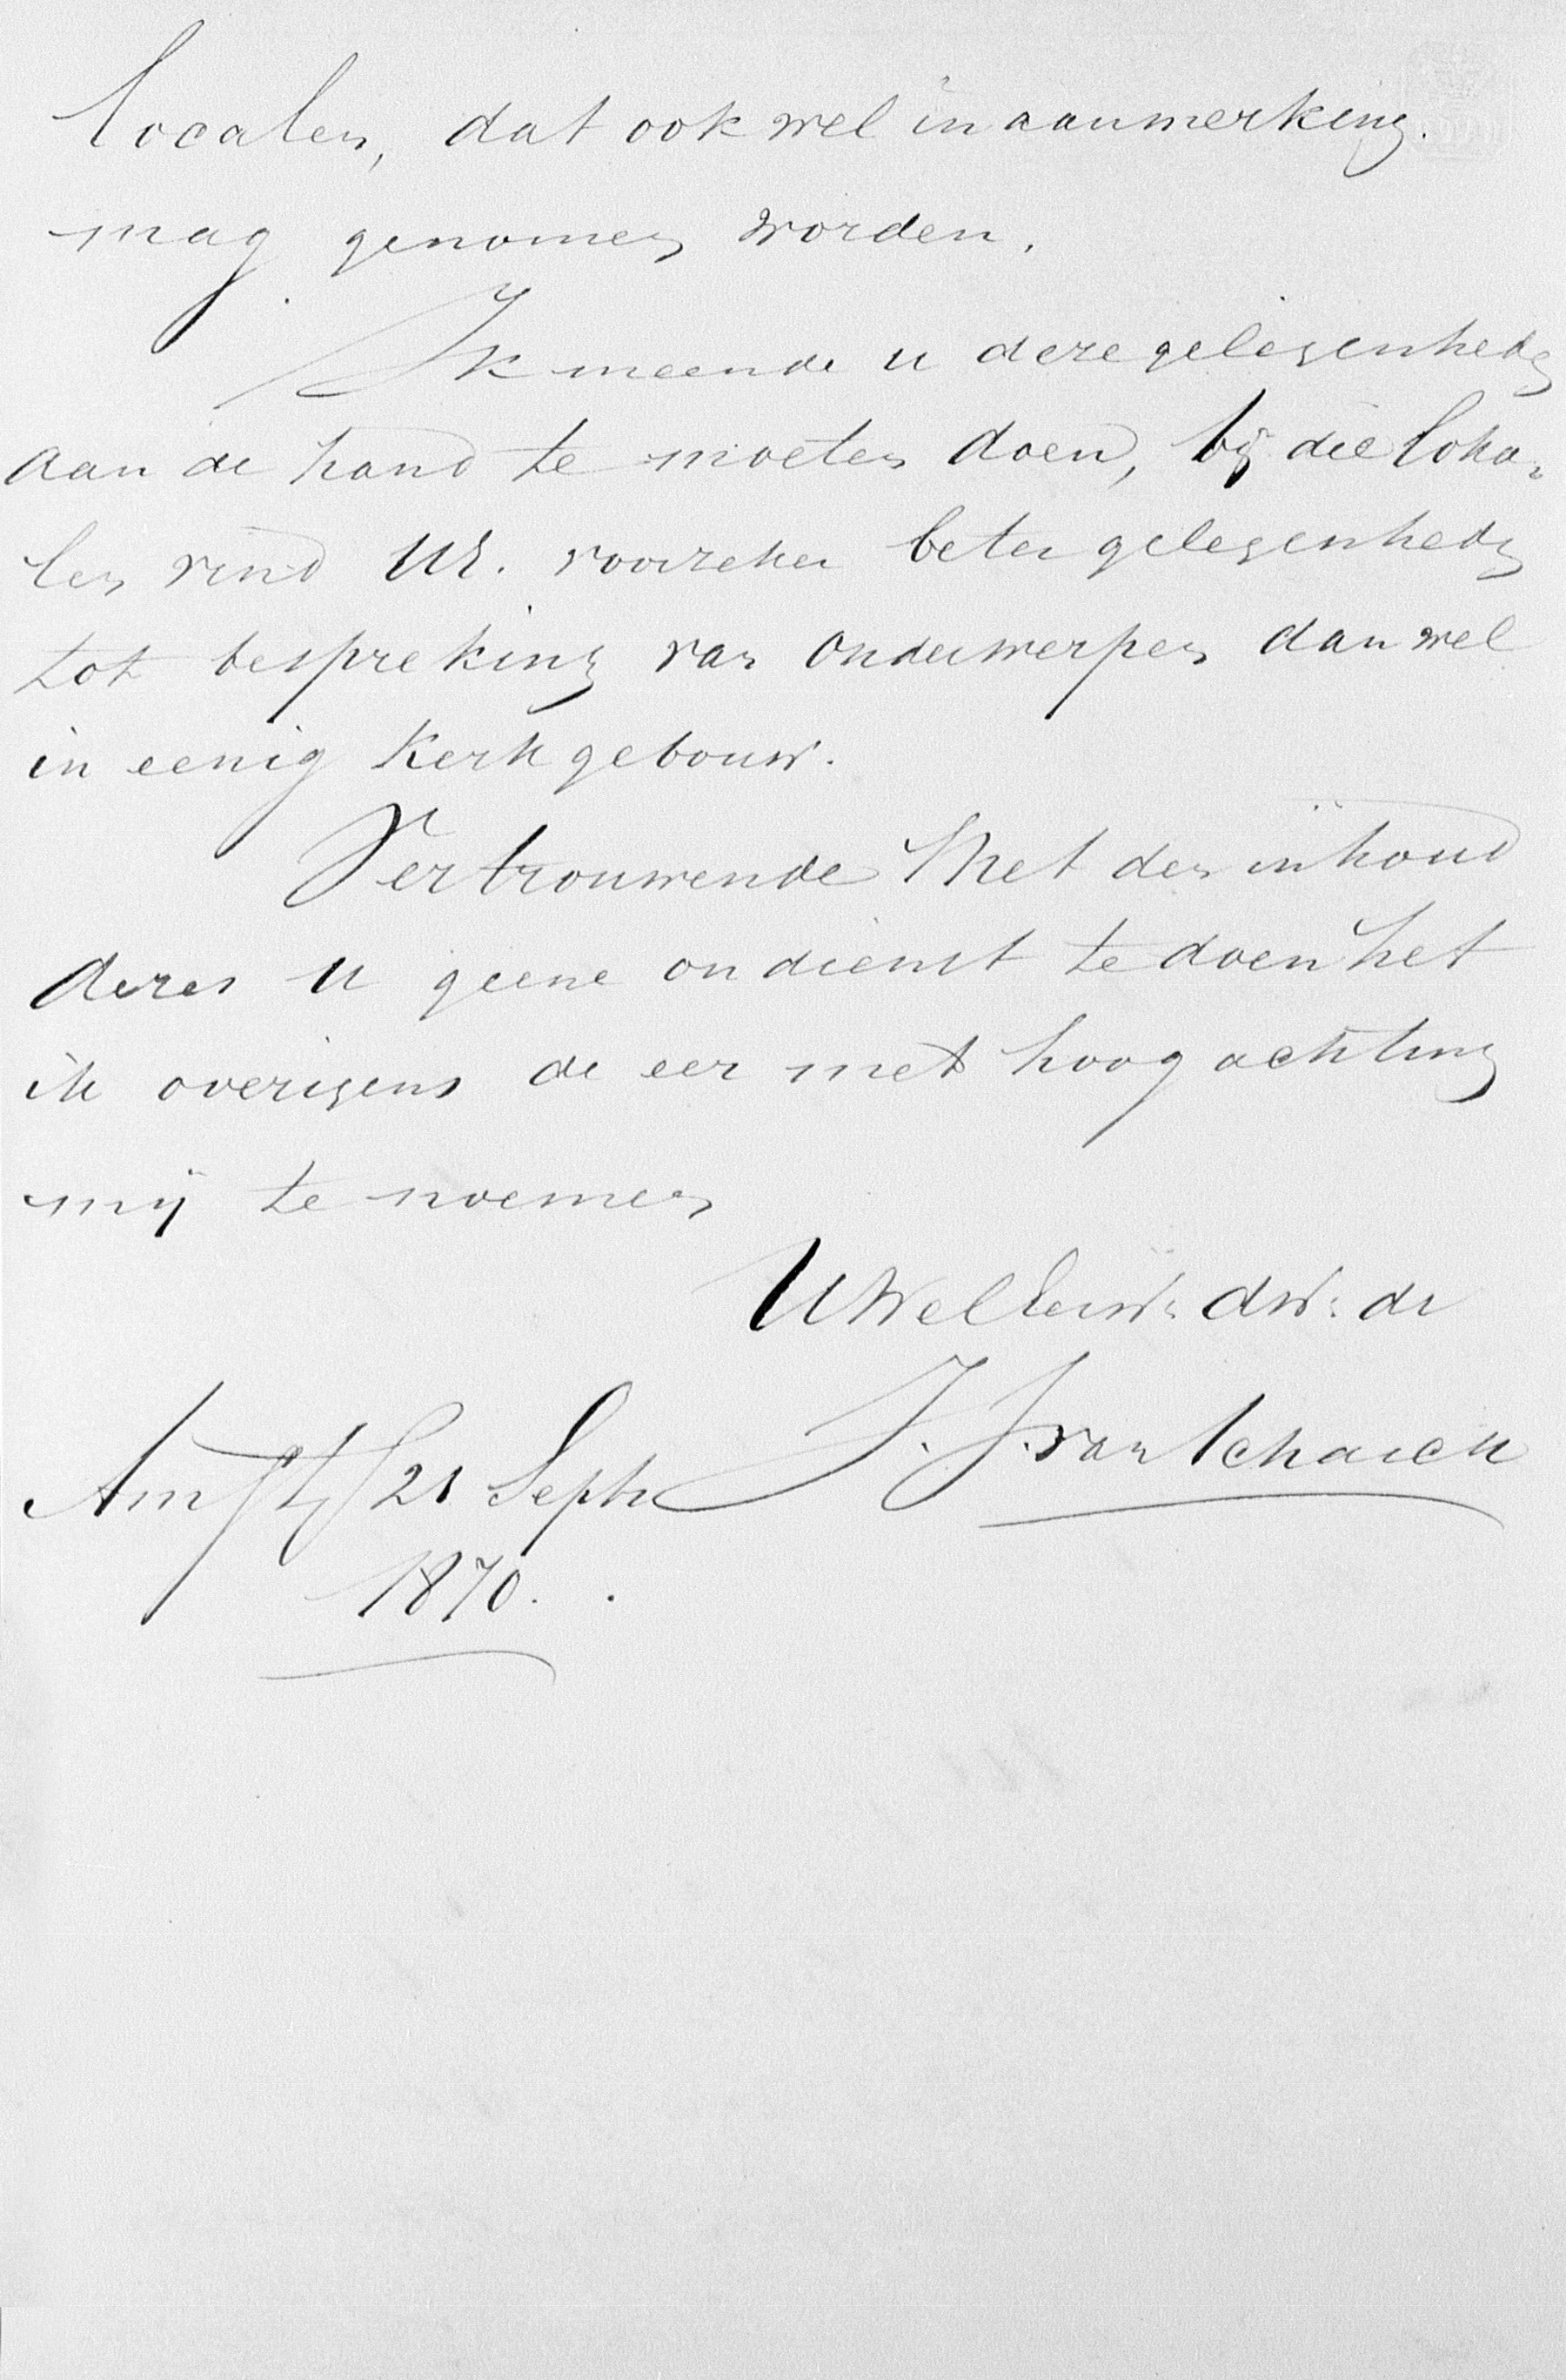 localen, dat ook wel in aanmerking
mag genomen worden.
Ik meende u deze gelegenheden
aan de hand te moeten doen, bij die loka„
len vind UE. voorzeker beter gelegenheden
tot bespreking van onderwerpen dan wel
in eenig kerkgebouw.
Vertrouwende Met den inhoud
dezes u geene ondienst te doen het
ik overigens de eer met hoogachting
mij te noemen
UWelEerw: dw: di
Amst 21 Septr J. J. van Schaick
1870.